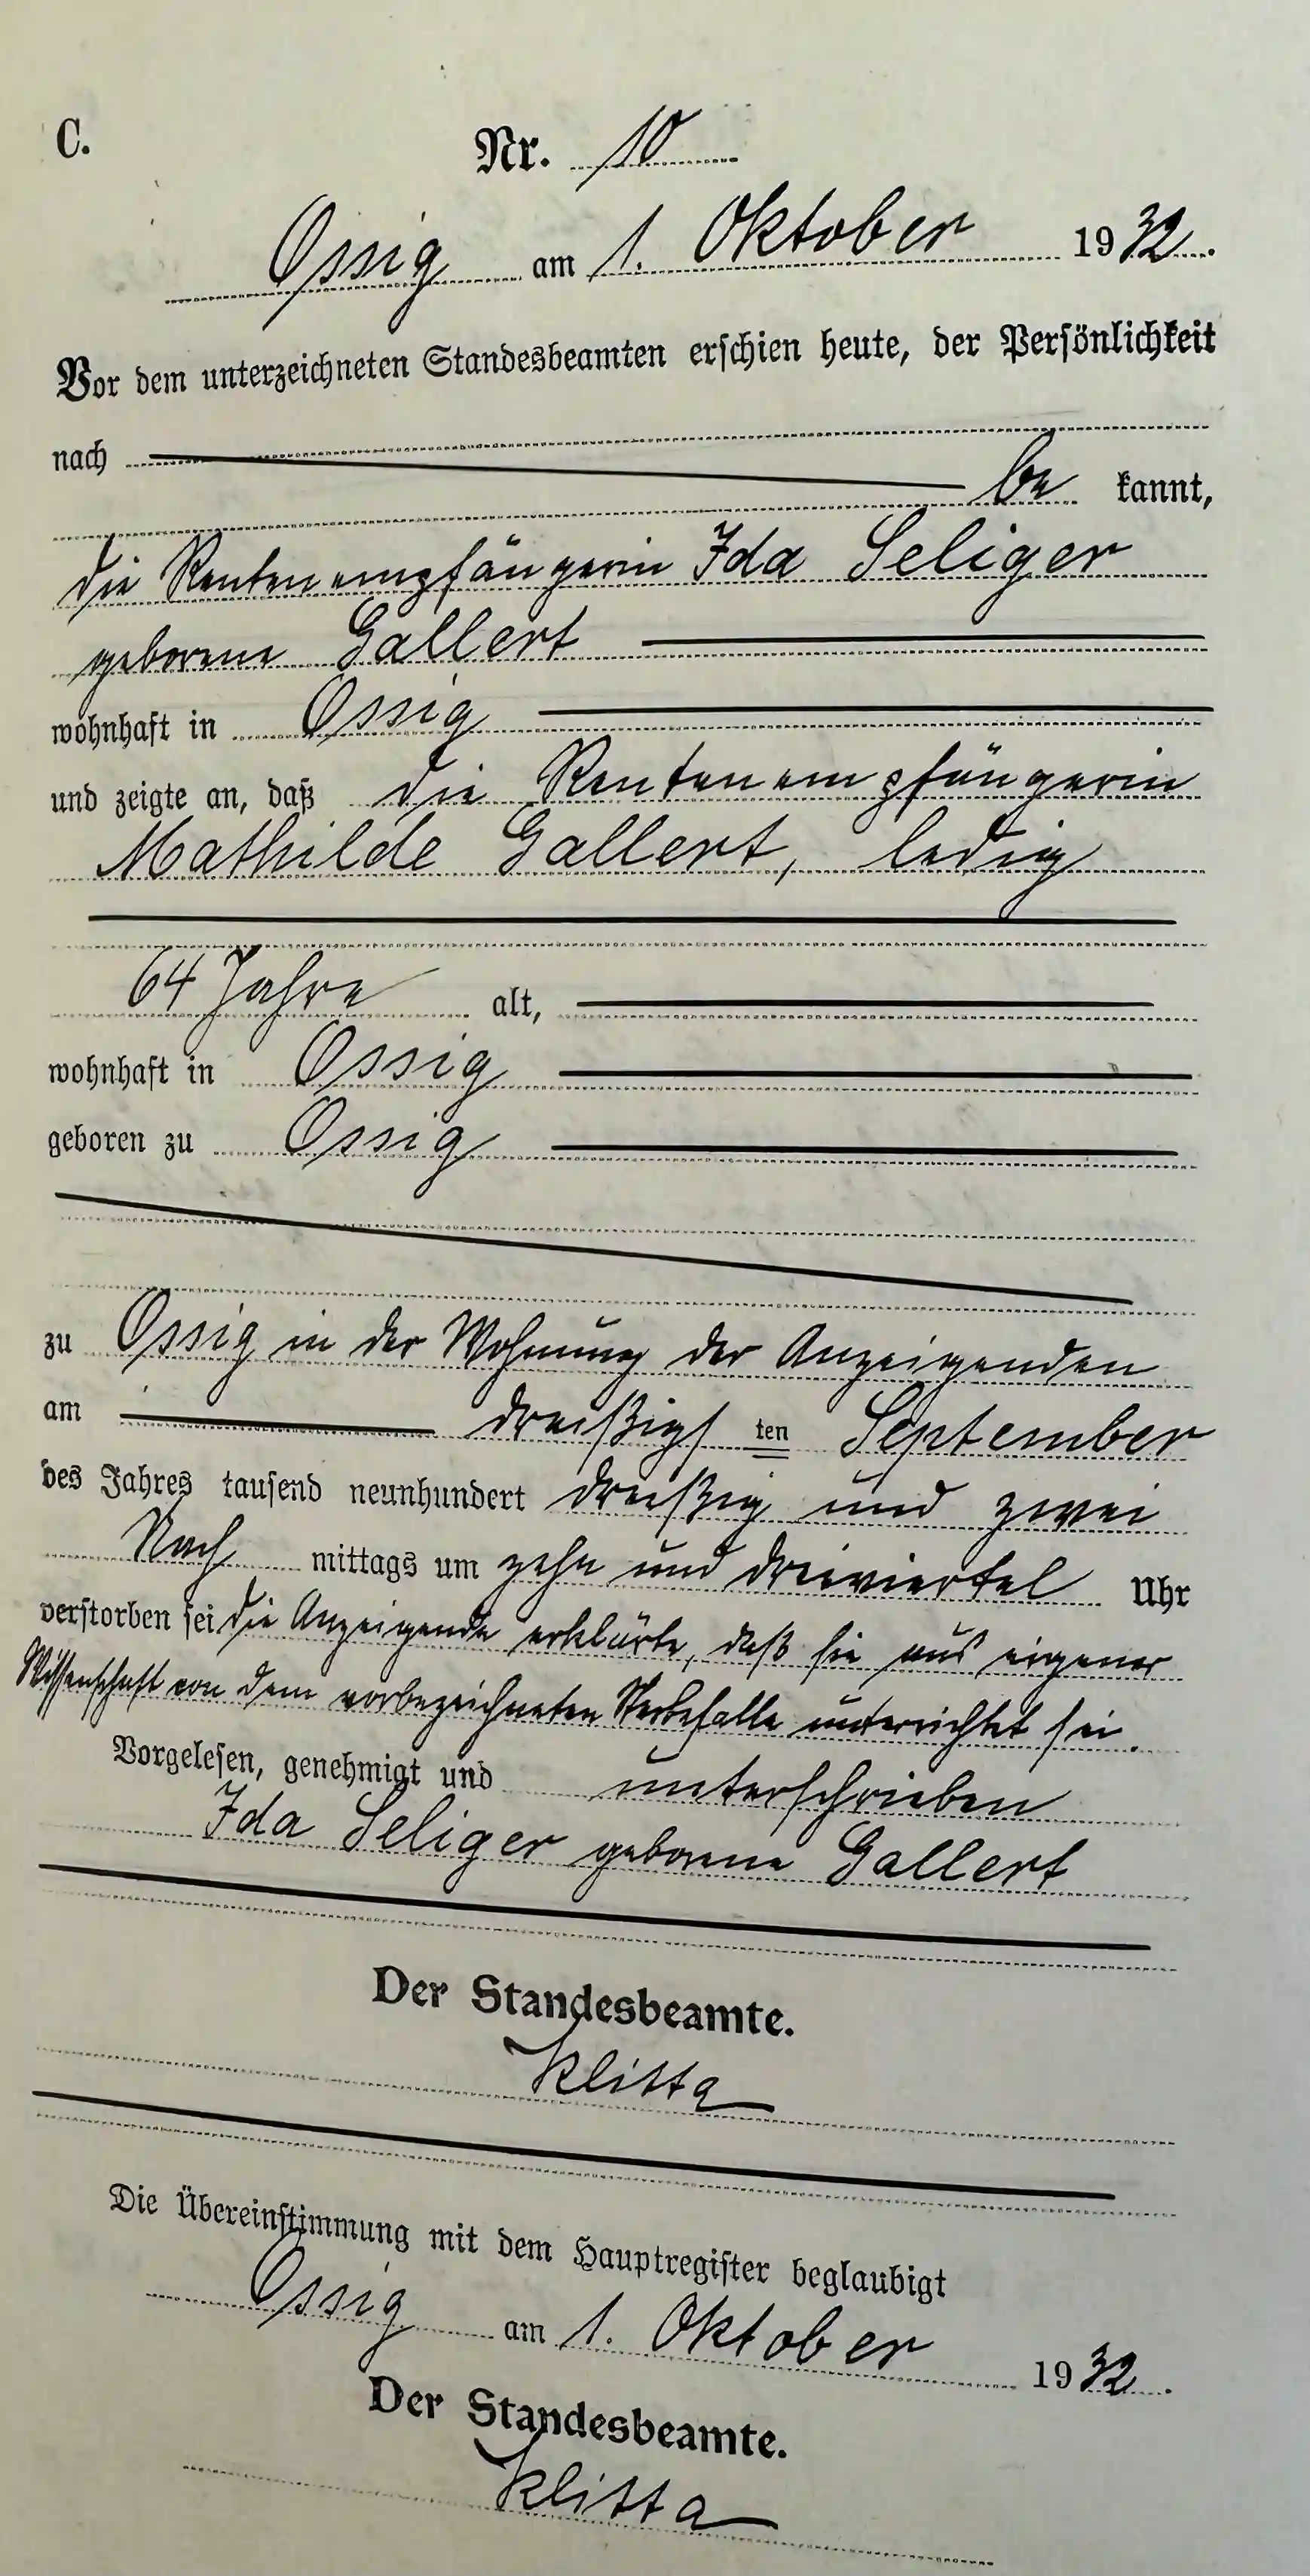 C.
Nr. 10
Ossig am 1. Oktober 1932.
Vor dem unterzeichneten Standesbeamten erschien heute, der Persönlichkeit
nach
be kannt,
die Rentenempfängerin Ida Seliger
geborene Gallert
wohnhaft in Ossig
und zeigte an, daß die Rentenempfängerin
Mathilde Gallert, ledig
64 Jahre alt,
wohnhaft in Ossig
geboren zu Ossig
zu Ossig in der Wohnung der Anzeigenden
am dreißigs ten September
des Jahres tausend neunhundert dreißig und zwei
Nach mittags um zehn und dreiviertel Uhr
verstorben sei die Anzeigende erklärte, daß sie aus eigener
Wissenschaft von dem vorbezeichneten Sterbefalle unterrichtet sei.
Vorgelesen, genehmigt und unterschrieben
Ida Seliger geborene Gallert
Der Standesbeamte.
Klitta
Die Übereinstimmung mit dem Hauptregister beglaubigt
Ossig am 1. Oktober 1932.
Der Standesbeamte.
Klitta